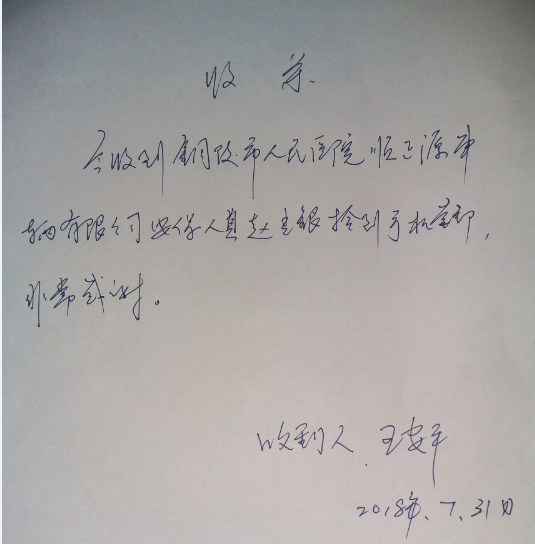 收条
今收到铜陵市人民医院顺正源车
辆有限公司安保人员赵立银捡到手机壹部,
非常感谢。
收到人 王安平
2018年.7.31日